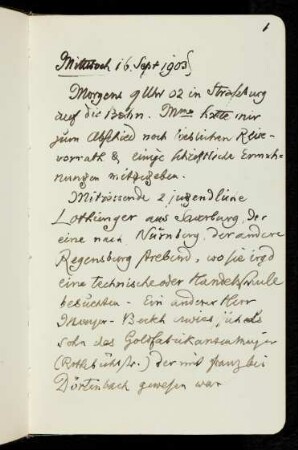 1
Mittwoch 16. Sept 1903
Morgens 9 Uhr 02 in Straßburg
auf die Bahn. Mma hatte mir
zum Abschied noch lieblichen Reise-
vorrath & einige schriftliche Ermah-
nungen mitgegeben.
Mitreisende 2 jugendliche
Lothringer aus Saarburg, der
eine nach Nürnberg, der andere
Regensburg strebend, wo sie irgd
eine technische oder Handelsschule
besuchten. Ein anderer Herr
Mayer-                     als
Sohn des Goldfabrikanten Mayer
der mit Franz bei
Dörtenbach gewesen war